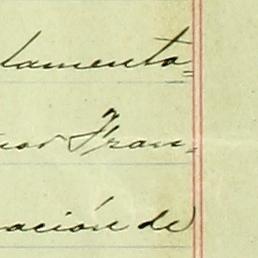 lamento=
nor Fran-
ación de